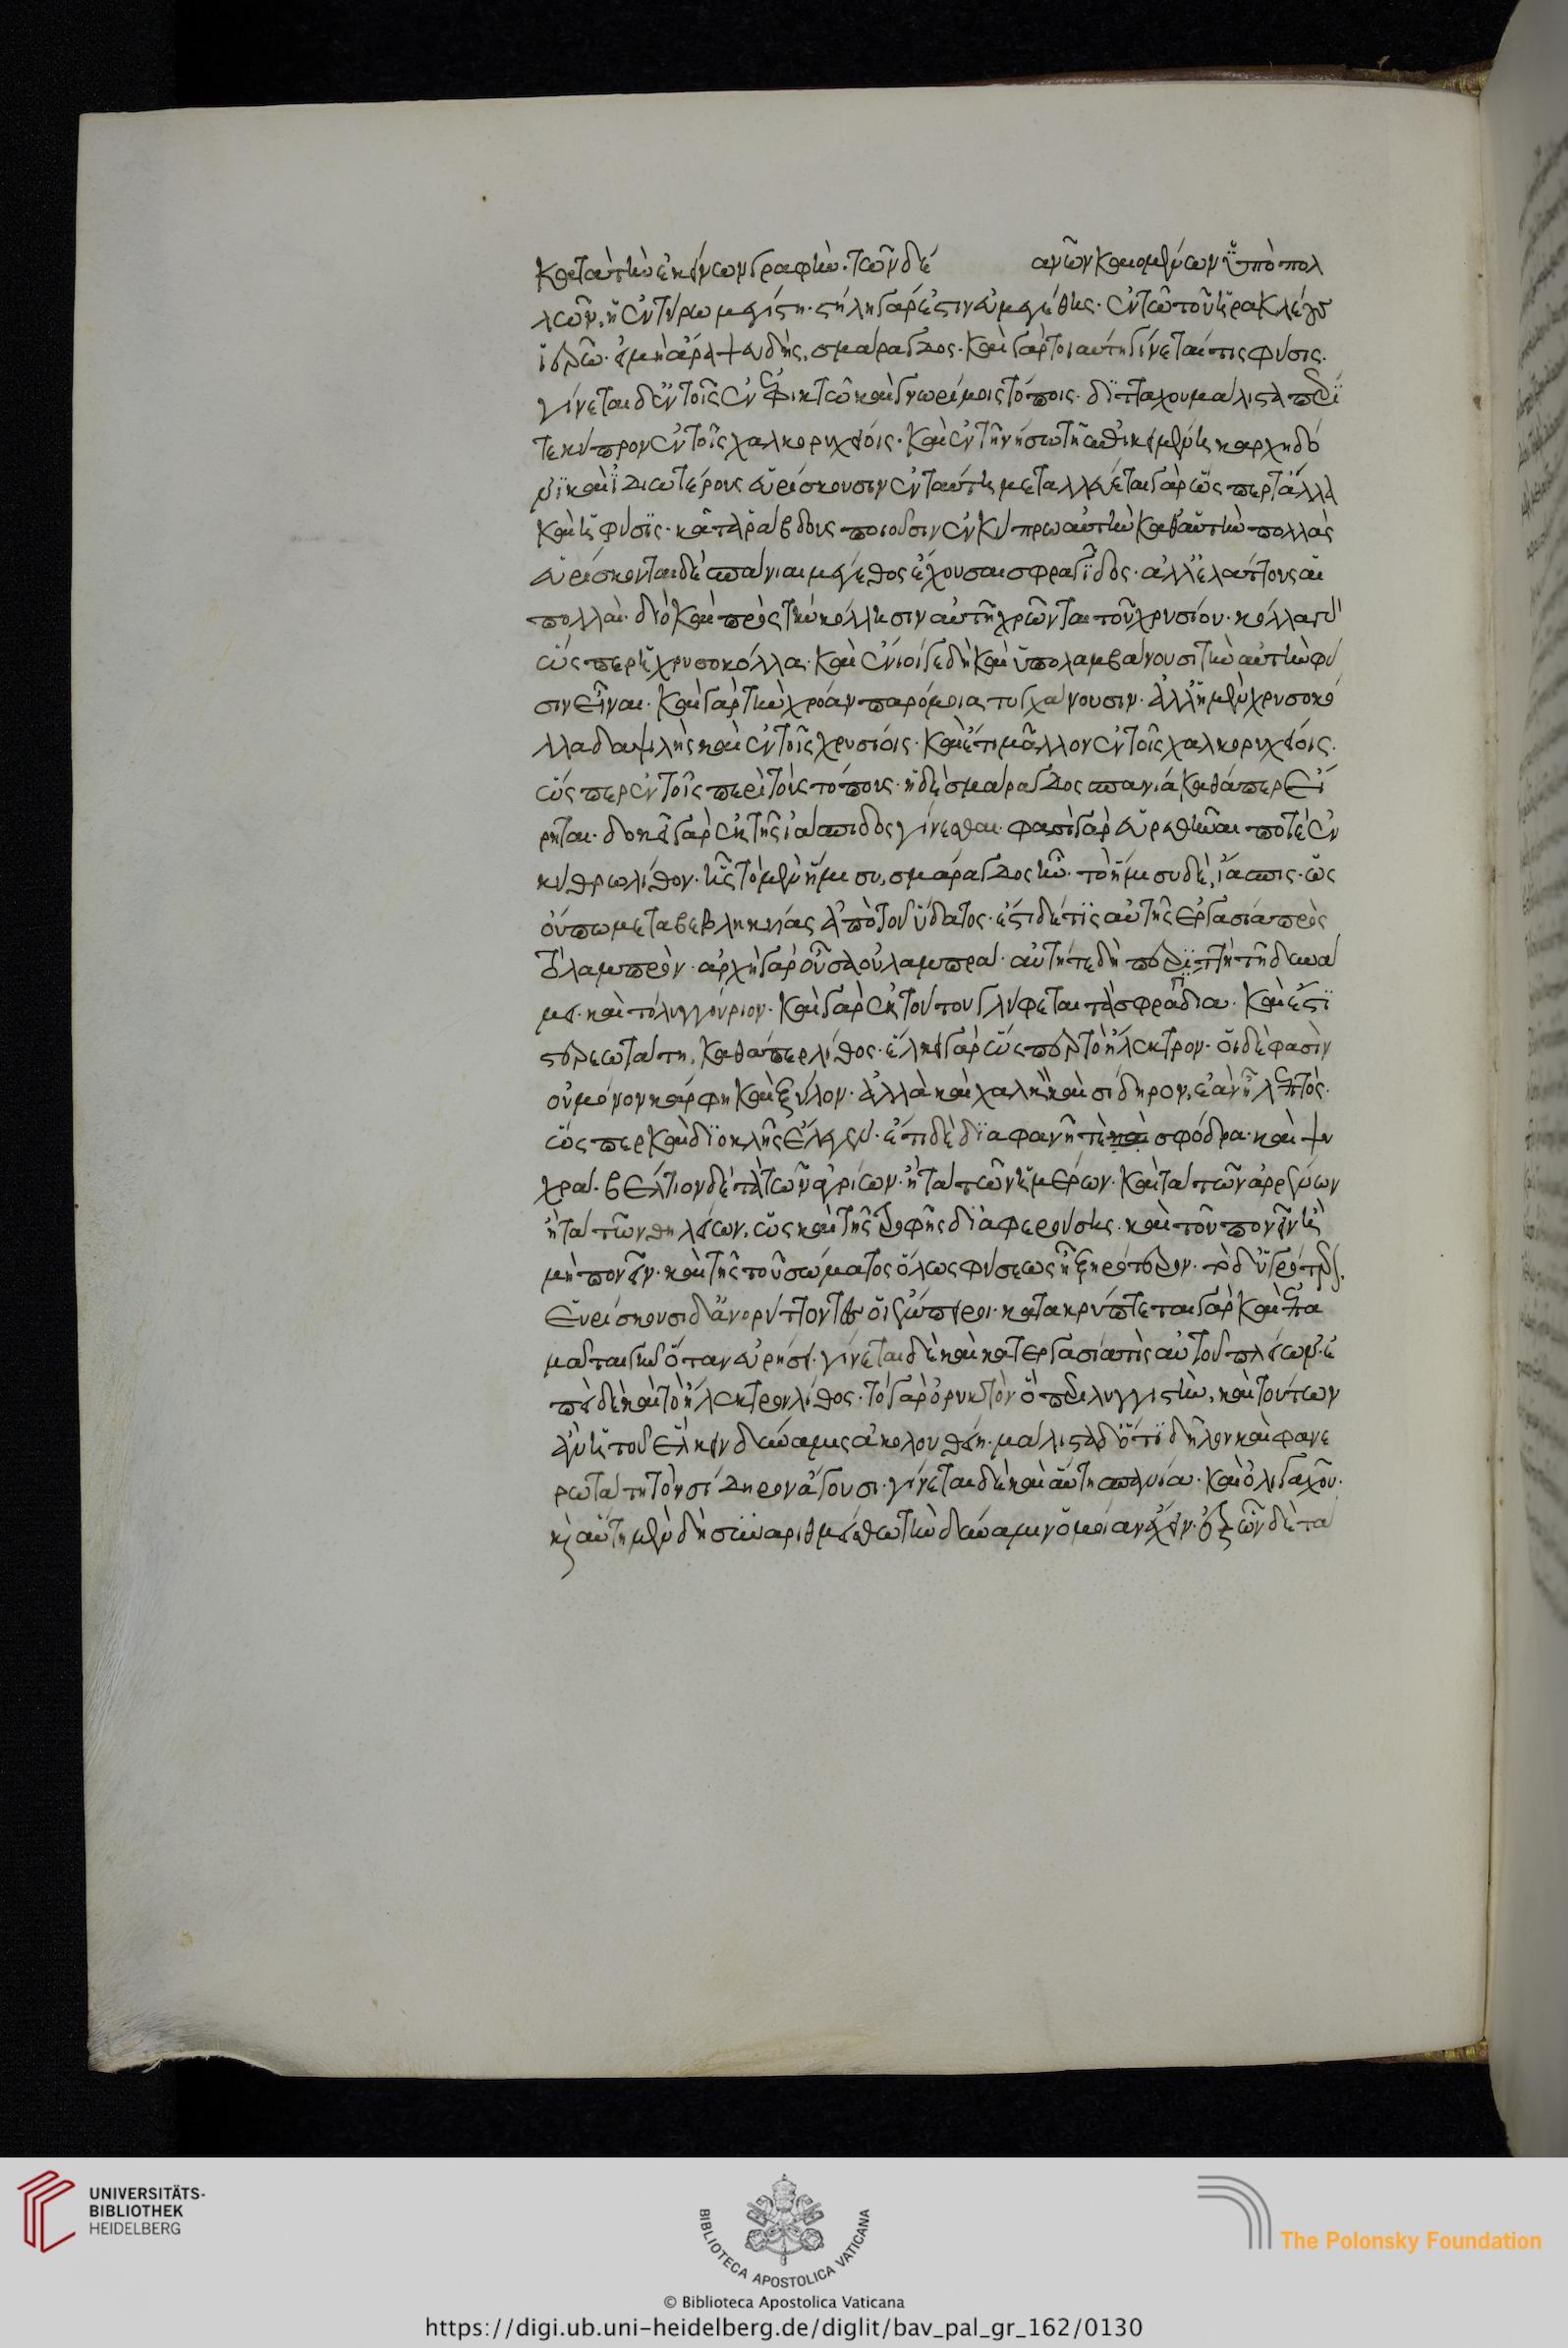 κατὰ τὴν ἐκείνων γραφήν. τῶν δὲ ανῶν καλουμένων ὑπὸ πολ
λῶν. ἡ ἐν τύρω μεγίστη. στήλη γάρ ἐστιν εὐμεγέθης. ἐν τῶ τοῦ ἡρακλέους
ἱερῶ. εἰ μὴ ἄρα ψευδὴς, σμάραγδος. καὶ γὰρ τοιαύτη γίνεταί τις φύσις.
γίνεται δ' ἐν τοῖς ἐν ἐφικτῶ καὶ γνωρίμοις τόποις. διτταχοῦ μάλιστα περί
τε κύπρον ἐν τοῖς χαλκορυχείοις. καὶ ἐν τῆ νήσω τῆ ἐπικειμένη καρχηδό
νϊ καὶ ἰδιωτέρους εὑρίσκουσιν ἐν ταύτη μεταλλεύεται γὰρ ὥσπερ τἄλλα
καὶ ἡ φύσϊς. κατα ῥάβδους ποιοῦσιν ἐν κύπρω αὐτὴν καθαὑτὴν πολλὰς
εὑρίσκονται δὲ σπάνιαι μέγεθος ἔχουσαι σφραγῖδος. ἀλλ' ἐλάττους αἱ
πολλαί. διὸ καὶ πρὸς τὴν κόλλησιν αὐτῆ χρῶνται τοῦ χρυσίου. κολλᾶ γὰρ
ὥσπερ ἡ χρυσοκόλλα. καὶ ἔνιοί γε δὴ καὶ ὑπολαμβάνουσι τὴν αὐτὴν φύ
σιν εἶναι. καὶ γὰρ τὴν χρόαν παρόμοια τυγχάνουσιν. ἀλλ' ἡ μὲν χρυσοκό
λλα δαψιλὴς καὶ ἐν τοῖς χρυσείοις. καὶ ἔτι μᾶλλον ἐν τοῖς χαλκορυχείοις.
ὥσπερ ἐν τοῖς περὶ τοὺς τόπους. ἡ δὲ σμάραγδος σπανία, καθάπερ εἴ
ρηται. δοκεῖ γὰρ ἐκ τῆς ἰάσπιδος γίνεσθαι. φασὶ γὰρ εὑρεθῆναι ποτὲ ἐν
κύπρω λίθον. ἧς τὸ μὲν ἥμισυ, σμάραγδος ἦν. τὸ ἥμισυ δὲ, ἴασπις. ὡς
οὔπω μεταβεβληκυίας ἀπὸ τοῦ ὕδατος. ἔστι δέ τις αὐτῆς ἐργασία πρὸς
τὸ λαμπρόν. ἀρχὴ γὰρ οὖσα οὐ λαμπρά. αὐτή τε δὴ περϊττὴ τῆ δυνά
μει. καὶ τὸ λυγγούριον. καὶ γὰρ ἐκ τούτου γλύφεται τὰ σφραγίδια. καὶ ἔστϊ
στερεωτάτη, καθάπερ λίθος. ἕλκει γὰρ ὥσπερ τὸ ἤλεκτρον. οἱ δὲ φασὶν
οὐ μόνον κάρφη καὶ ξύλον. ἀλλὰ καὶ χαλκὸν καὶ σίδηρον, ἐὰν ἦ λεπτὸς.
ὥσπερ καὶ διοκλῆς ἔλεγεν. ἔστι δὲ διαφανῆ τε καὶ σφόδρα. καὶ ψυ
χρά. βελτίον δὲ τὰ τῶν ἀγρίων. ἢ τὰ τῶν ἡμέρων. καὶ τὰ τῶν ἀρρένων
ἢ τὰ τῶν θηλείων. ὡς καὶ τῆς τροφῆς διαφερούσης. καὶ τοῦ πονεῖν ἢ
μὴ πονεῖν. καὶ τῆς τοῦ σώματος ὅλως φύσεως ἢ ξηρότερον. τὸ δ' ὑγρότερον.
εὑρίσκουσι δ' ἀνορύττοντες οἱ ἔμπειροι. κατακρύπτεται γὰρ καὶ ἐπα
μᾶται γῆν ὅταν οὐρήση. γίνεται δὲ καὶ κατεργασία τις αὐτοῦ πλείων. ἐ
πεὶ δὲ καὶ τὸ ἤλεκτρον λίθος. τὸ γὰρ ὀρυκτὸν ὃ περὶ λιγυστικὴν, καὶ τούτων
ἂν ἡ τοῦ ἕλκειν δύναμις ἀκολουθείη. μάλιστα δ' ὅτι δῆλον καὶ φανε
ρωτάτη τὸν σίδηρον ἄγουσι. γίνεται δὲ καὶ αὕτη σπανία. καὶ ὀλιγαχοῦ.
καὶ αὕτη μὲν δὴ συναριθμείσθω τὴν δύναμιν ὁμοίαν ἔχειν. ἐξ ὧν δὲ τὰ
UNIVERSITÄTS-
BIBLIOTHEK
HEIDELBERG
BIBLIOTECA APOSTOLICA VATICANA
The Polonsky Foundation
© Biblioteca Apostolica Vaticana
https://digi.ub.uni-heidelberg.de/diglit/bav_pal_gr_162/0130